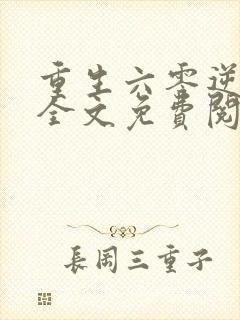 重生六零逆
全文免費閱
長岡三重子